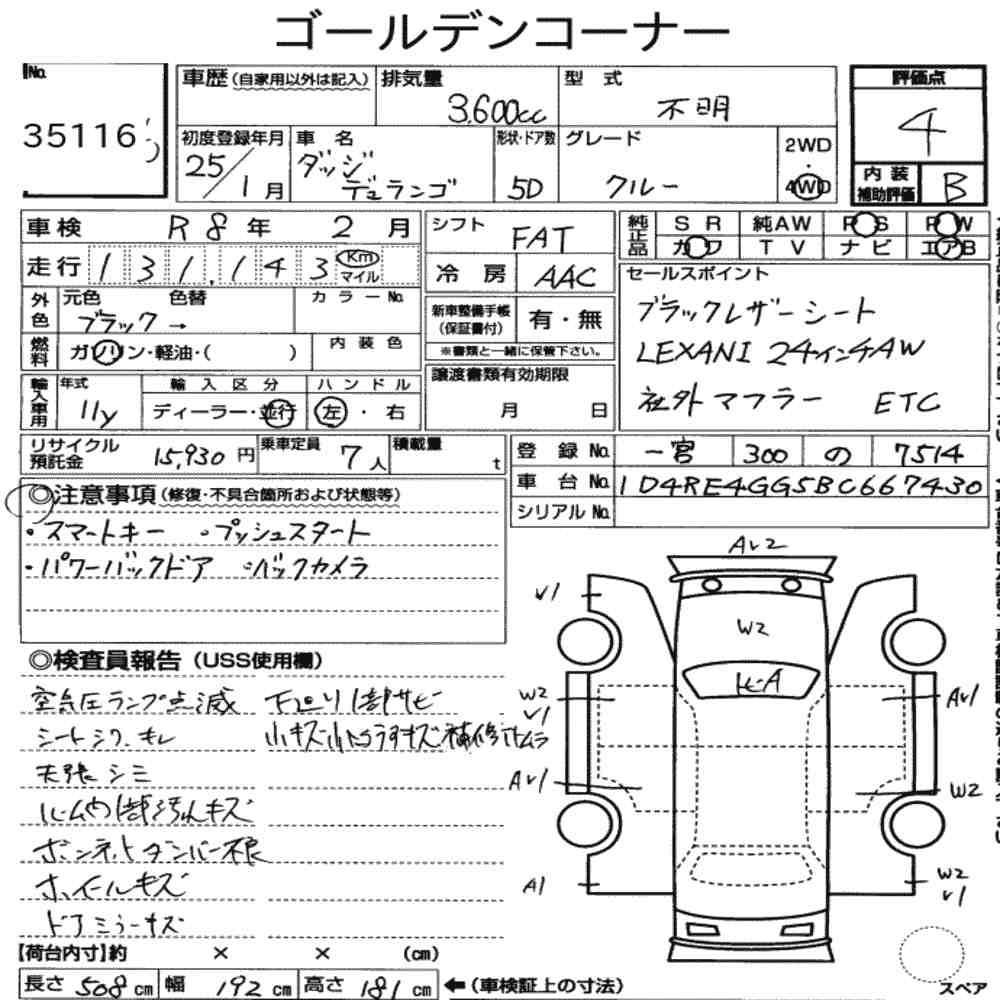 ゴールデンコーナー
No. 35116
車歴(自家用以外は記入) 排気量 3,600cc 型式 不明 評価点 4
初度登録年月 25/1月 車名 ダッジ デュランゴ 形状・ドア数 5D グレード クルー 2WD 4WD 内装補助評価 B
車検 R8年 2月 シフト FAT 純正品 SR 純AW PS PW
走行 131,143 Km マイル 冷房 AAC カワ TV ナビ エアB
外色 元色 色替 カラーNo. ブラック→ 新車整備手帳(保証書付) 有・無 セールスポイント
※書類と一緒に保管下さい。
燃料 ガソリン・軽油・( ) 内装色 ブラックレザーシート
譲渡書類有効期限 月 日 LEXANI 24インチAW
輸入車用 年式 11y 輸入区分 ディーラー・並行 ハンドル 左・右 社外マフラー ETC
リサイクル預託金 15,930円 乗車定員 7人 積載量 t 登録No. 一宮 300 の 7514
車台No. 1D4RE4GG5BC667430
シリアルNo.
◎注意事項(修復・不具合箇所および状態等)
・スマートキー ・プッシュスタート
・パワーバックドア ・バックカメラ
◎検査員報告(USS使用欄)
空気圧ランプ点滅 下廻り1部サビ
シートシワ.キレ 小キズ小凹うすキズ補修
天張シミ
ルーム内1部汚れキズ
ボンネットダンパー不良
ホイールキズ
ドアミラーキズ
【荷台内寸】約 × × (cm)
長さ 508cm 幅 192cm 高さ 181cm ←(車検証上の寸法)
AV2
V1
W2
ヒA
W2
V1
AV1
AV1
W2
A1
W2
V1
スペア